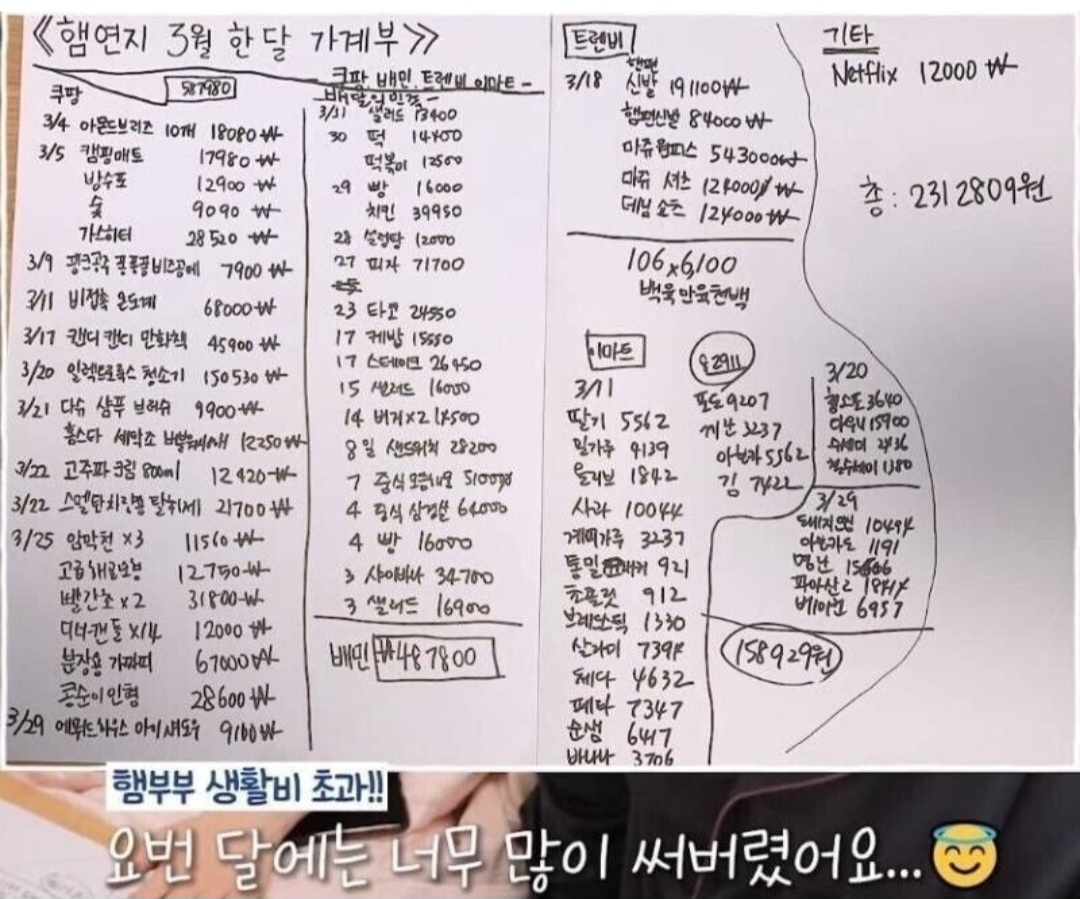 《햄연지 3월 한달 가계부》
쿠팡 587980
3/4 아몬드브리즈 10개 18080₩
3/5 캠핑매트 17980₩
방수포 12900₩
숯 9090₩
가스히터 28520₩
3/9 핑크공주 퐁퐁퐁비즈공예 7900₩
3/11 비접촉 온도계 68000₩
3/17 캔디캔디 만화책 45900₩
3/20 일렉트로룩스 청소기 150530₩
3/21 다슈 샴푸 브러쉬 9900₩
홈스타 세탁조 12250₩
3/22 고주파크림 800ml 12420₩
3/22 탈취제 21700₩
3/25 암막천 x3 11560₩
고급 12750₩
빨간초 x2 31800₩
디너캔들 x14 12000₩
분장용 가짜피 67000₩
콩순이인형 28600₩
3/29 에뛰드하우스 아이섀도우 9160₩
쿠팡, 배민, 트렌비, 이마트
배달의민족
3/31 샐러드 13400
30 떡 14400
떡볶이 12500
29 빵 16000
치킨 39950
28 설렁탕 12000
27 피자 71700
23 타코 24550
17 케밥 15550
17 스테이크 26950
15 샐러드 16000
14 버거x2 14500
8일 샌드위치 28200
7 중식 51000
4 중식 64000
4 빵 16000
3 사이바바 34700
3 샐러드 16900
배민 ₩487800
트렌비
3/18 햄편
신발 191100₩
햄편신발 84000₩
마쥬원피스 543000₩
마쥬 셔츠 124000₩
데님쇼츠 124000₩
106x6,100
백육만육천백
이마트
3/11
딸기 5562
밀가루 9139
올리브 1842
사과 10044
계피가루 3237
통밀 921
초플렛 912
브레드스틱 1330
살라미 7394
체다 4632
페타 7347
순샘 6417
바나나 3706
포도 9207
3237
아보카도 5562
김 7422
3/20
3640
다우니 15900
수세미 2436
철수세미 1380
3/29
10494
아보카도 1191
명란
파아산
베이컨 6957
158929원
기타
Netflix 12000₩
총: 2312809원
햄부부 생활비 초과!!
요번 달에는 너무 많이 써버렸어요...